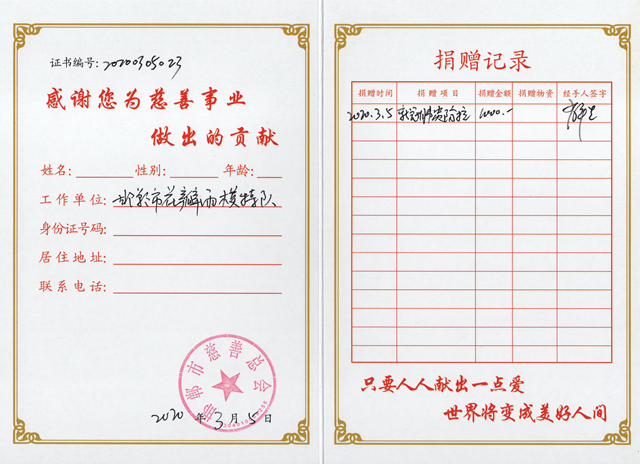 证书编号:20200305023
感谢您为慈善事业
做出的贡献
姓名: 性别: 年龄:
工作单位:邯郸市花瓣雨模特队
身份证号码:
居住地址:
联系电话:
邯郸市慈善总会
2020年3月5日
捐赠记录
捐赠时间 捐赠项目 捐赠金额 捐赠物资 经手人签字
2020.3.5 新冠肺炎防控 1000.-
只要人人献出一点爱
世界将变成美好人间